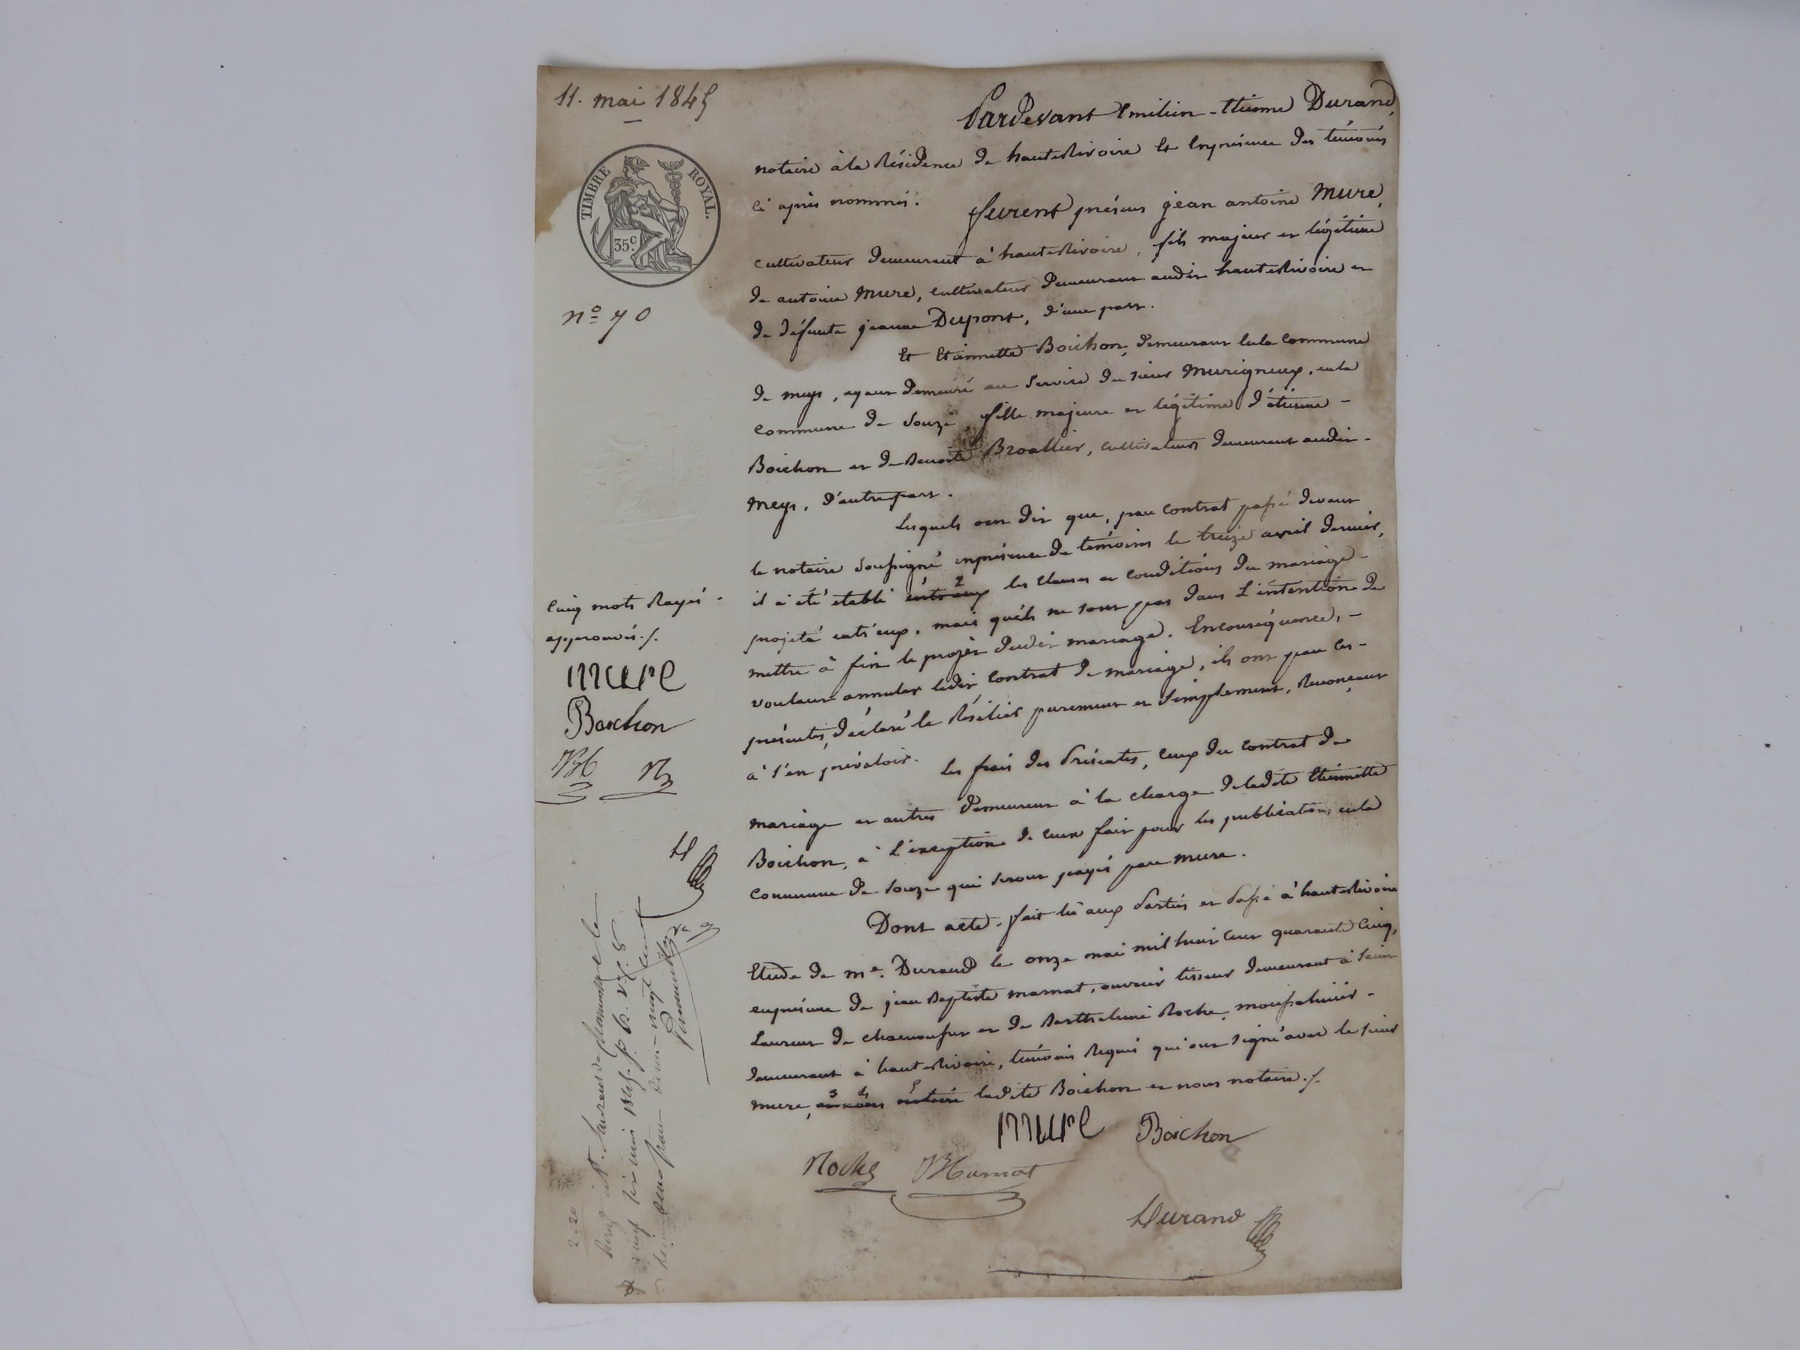 11. mai 1845
TIMBRE ROYAL.
35c.
nº 70
Pardevant Emilien-Etienne Durand,
notaire à la Résidence de hauteRivoire Et Enprésence des témoins
ci après nommés.
furent présens jean antoine Mure,
cultivateur demeurant à hauteRivoire, fils majeur et légitime
de antoine Mure, cultivateur demeurant audit hauteRivoire et
de défunte jeanne Dupont, d'une part.
Et Etiennette Boichon, demeurant enla commune
de meys, ayant demeuré au service du sieur Murigneux, enla
commune de Souzy, fille majeure et légitime d'étienne
Boichon et de Benoite Broallier, cultivateurs demeurant audit
Meys, d'autre part.
Lesquels ont dit que, par contrat passé devant
le notaire soussigné enprésence de témoins le treize avril dernier,
il a été établi entr'eux 2 les clauses et conditions du mariage
projeté entr'eux, mais qu'ils ne sont pas dans L'intention de
mettre à fin le projet dudit mariage. Enconséquence,
voulant annuler ledit contrat de mariage, ils ont par ces
présentes, déclaré le Résilier purement et simplement, Renonçant
à s'en prévaloir.
Les frais des Présentes, ceux du contrat de
mariage et autres demeurent à la charge deladite Etiennette
Boichon, à L'exception de ceux fait pour les publications enla
commune de Souzy qui seront payés par mure.
Dont acte. fait lu aux Parties et Passé à hauteRivoire
Etude de me. Durand le onze mai mil huit cent quarante cinq,
enprésence de jean Baptiste marnat, ouvrier tisseur demeurant à Saint
Laurent de chamousset et de Barthelemi Roche, menuisier
demeurant à hauteRivoire, témoins Requis qui ont signé avec le sieur
mure, 3 4 5 notaire ladite Boichon et nous notaire ./.
Cinq mots Rayés
approuvés ./.
mure
Boichon
mure Boichon
Roche Marnat
Durand
2.20